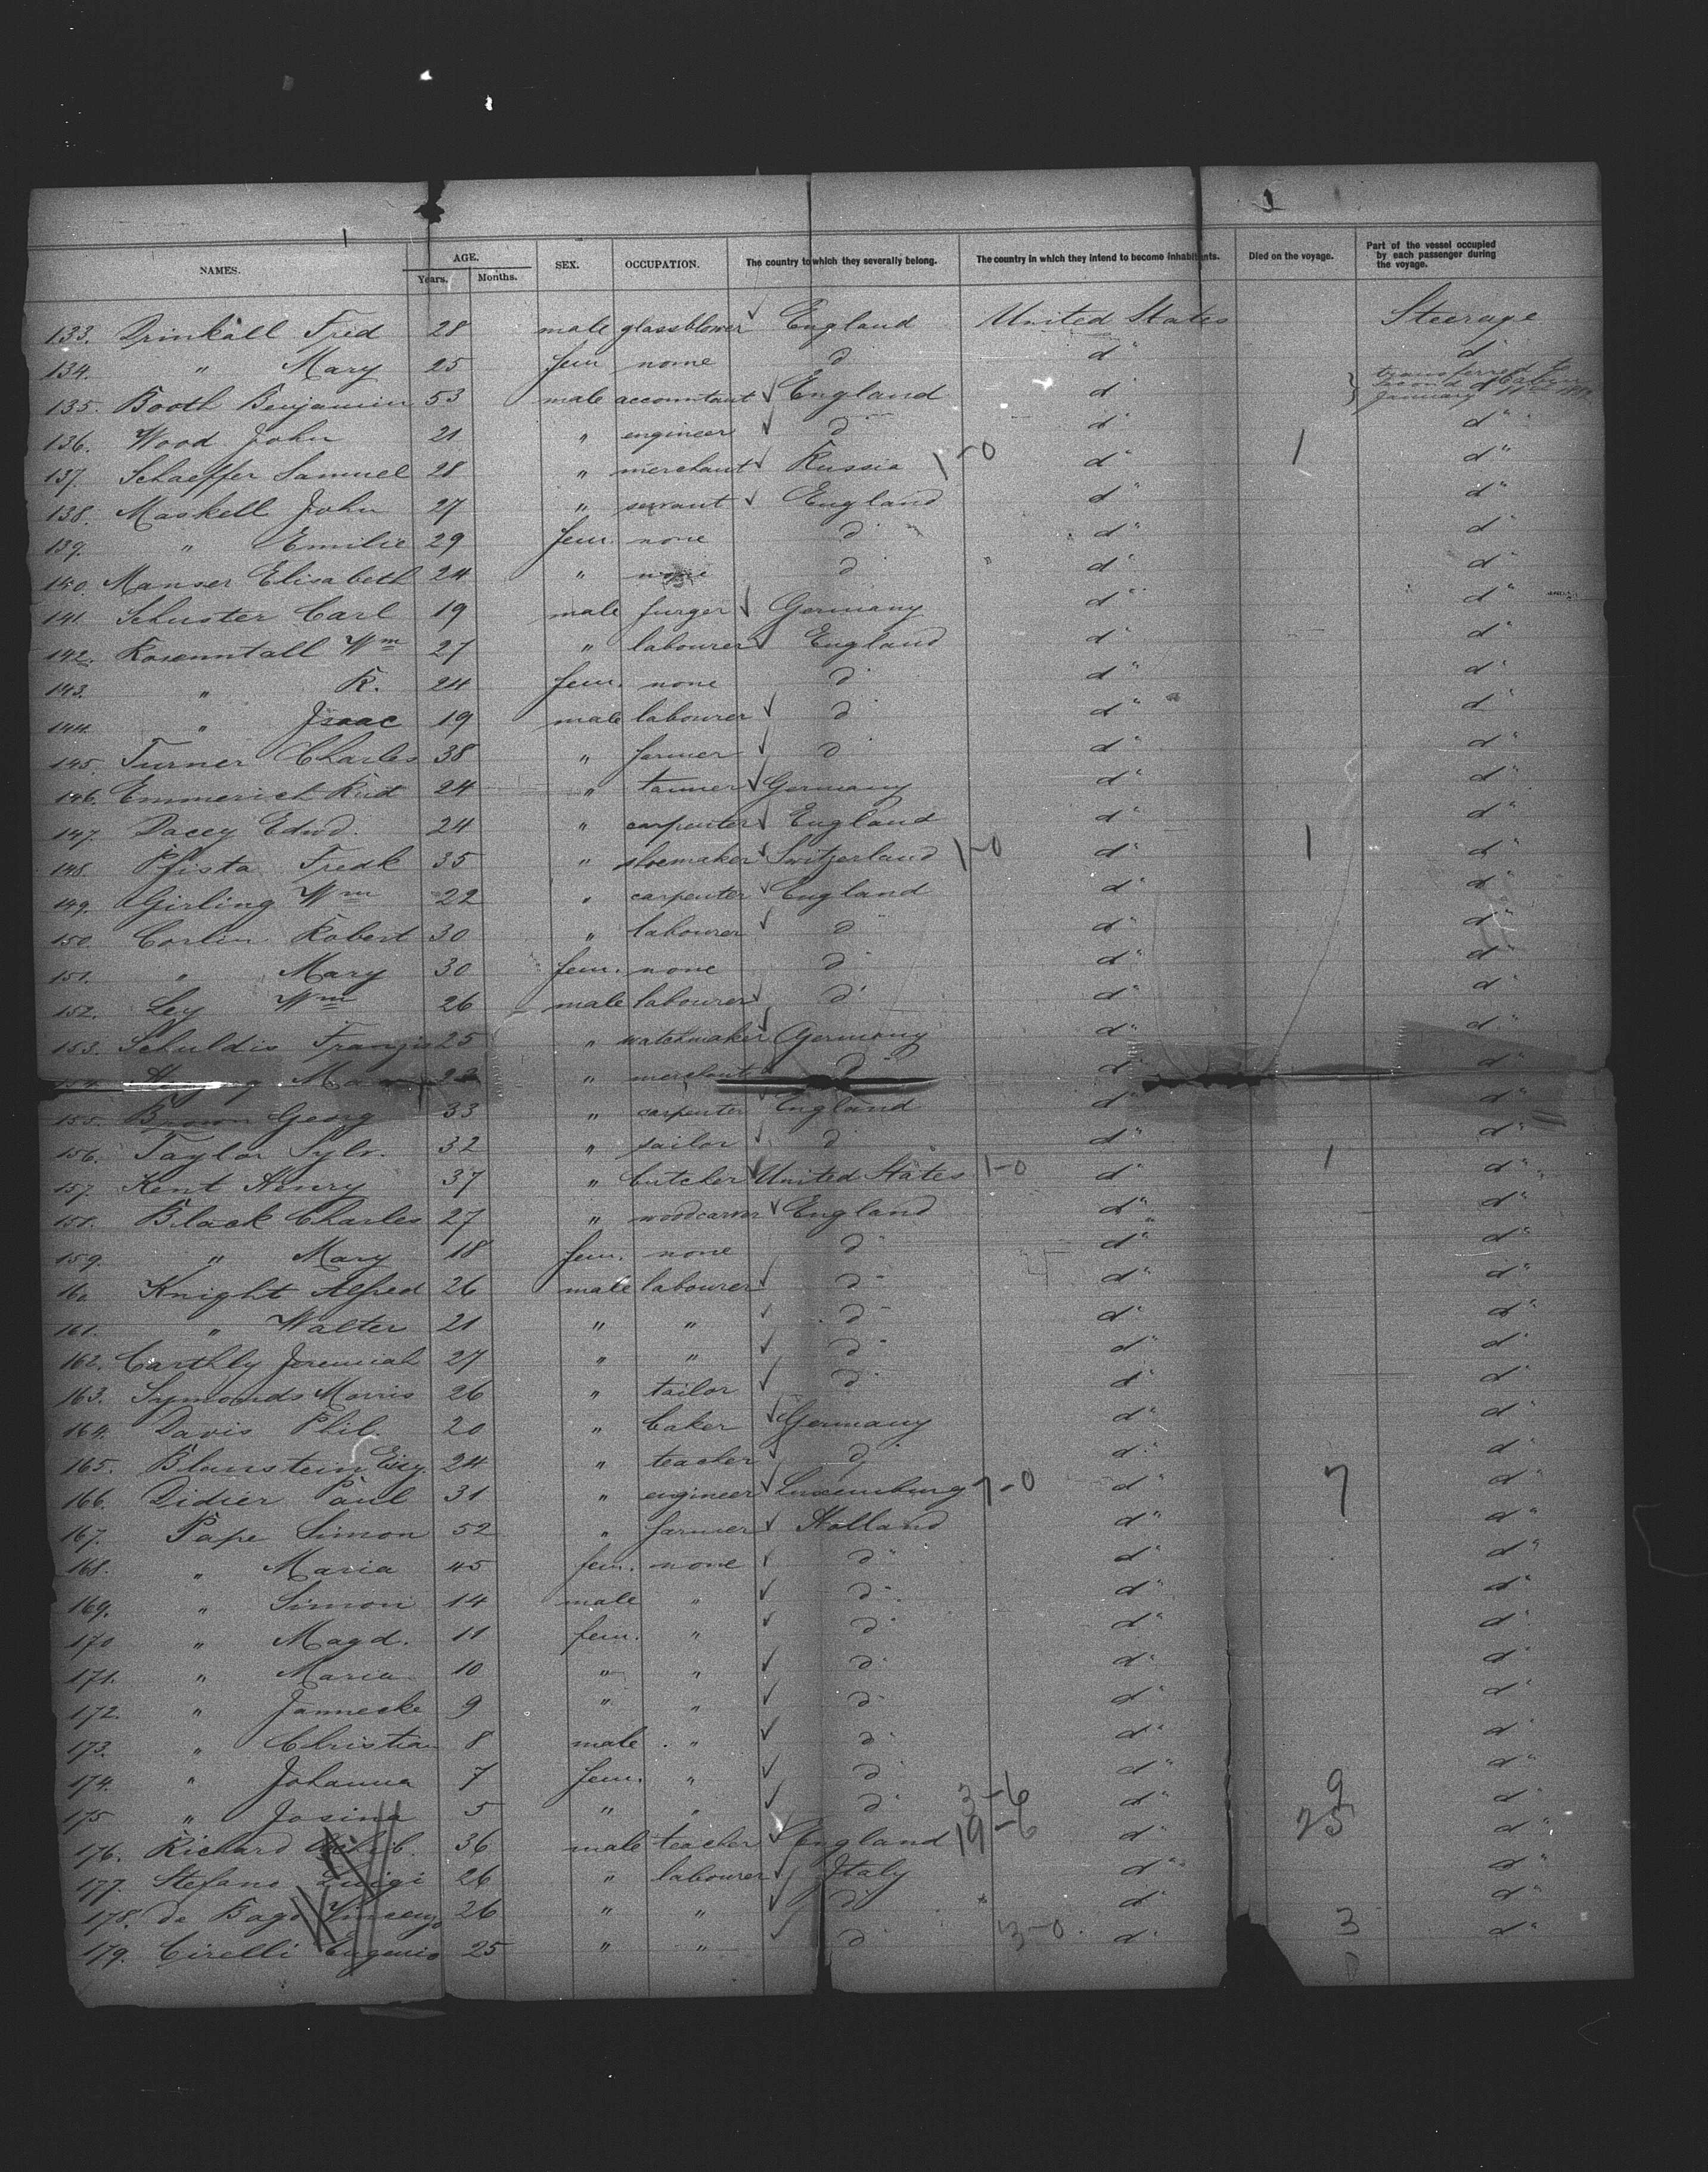 NAMES. AGE. Years. Months. SEX. OCCUPATION. The country to which they severally belong. The country in which they intend to become inhabitants. Died on the voyage. Part of the vessel occupied by each passenger during the voyage.
133. Drinkall Fred 28 male glassblower England United States Steerage
134. " Mary 25 fem none d° d° d°
transferred to second Cabin January 11th
135. Booth Benjamin 53 male accountant England d° d°
136. Wood John 21 " engineer d° d° d°
137. Schaeffer Samuel 28 " merchant Russia 1-0 d° 1 d°
138. Maskell John 27 " servant England d° d°
139. " Emilie 29 fem. none d° d° d°
140. Manser Elisabeth 24 " none d° d° d°
141. Schuster Carl 19 male furger Germany d° d°
142. Rosenntall Wm 27 " labourer England d° d°
143. " R. 24 fem. none d° d° d°
144. " Isaac 19 male labourer d° d° d°
145. Turner Charles 38 " farmer d° d° d°
146. Emmerich Rud 24 " tanner Germany d° d°
147. Dacey Edwd. 24 " carpenter England d° d°
148. Pfista Fredk 35 " shoemaker Switzerland 1-0 d° 1 d°
149. Girling Wm 22 " carpenter England d° d°
150. Corlin Robert 30 " labourer d° d° d°
151. " Mary 30 fem. none d° d° d°
152. Ley Wm 26 male labourer d° d° d°
153. Schuldis Franzis 25 " watchmaker Germany d° d°
154. " merchant d° d° d°
155. Brown Georg 33 " carpenter England d° d°
156. Taylor Sylv. 32 " sailor d° d° d°
157. Kent Henry 37 " butcher United States 1-0 d° 1 d°
158. Black Charles 27 " woodcarver England d° d°
159. " Mary 18 fem. none d° d° d°
160 Knight Alfred 26 male labourer d° d° d°
161. " Walter 21 " " d° d° d°
162. Carthly Jeremiah 27 " " d° d° d°
163. Symonds Morris 26 " tailor d° d° d°
164. Davis Phil. 20 " baker Germany d° d°
165. Blanstein 24 " teacher d° d° d°
166. Didier Paul 31 " engineer Luxemburg 7-0 d° 7 d°
167. Pape Simon 52 " farmer Holland d° d°
168. " Maria 45 fem. none d° d° d°
169. " Simon 14 male " d° d° d°
170 " Magd. 11 fem. " d° d° d°
171. " Maria 10 " " d° d° d°
172. " Jannecke 9 " " d° d° d°
173. " Christian 8 male " d° d° d°
174. " Johanna 7 fem. " d° d° d°
175 " Josina 5 " " d° 3-6 d° 9 d°
176. Richard 36 male teacher England 19-6 d° 25 d°
177. Stefano Luigi 26 " labourer Italy d° d°
178. de Bago Vincenzo 26 " " d° d° d°
179. Cirelli Eugenio 25 " " d° 3-0 d° 3 d°